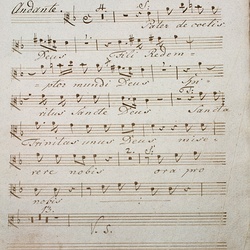 Andante. 4 S:
Pater de coelis
Deus Fili Redem-
ptor mundi Deus Spi-
ritus Sancte Deus Sancta
Trinitas unus Deus mise-
rere nobis ora pro
nobis
13. V. S.